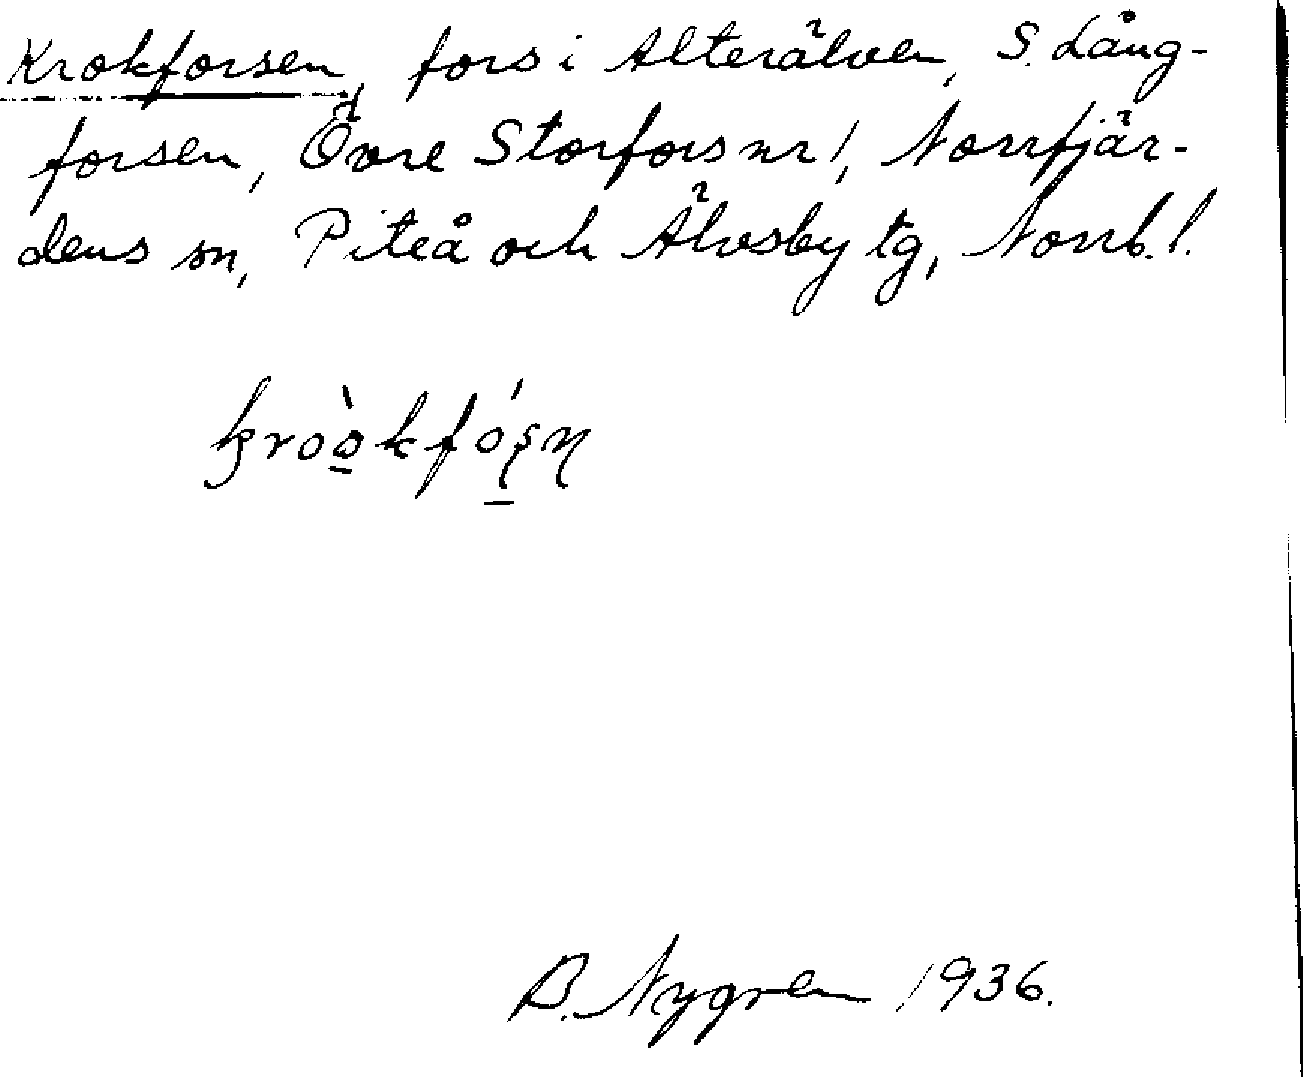 Krokforsen, fors i Alterälven, S. Lång-
forsen, Övre Storfors nr 1, Norrfjär-
dens sn, Piteå och Älvsby tg, Norrb. l.
kroòkfóșn
B. Nygren 1936.